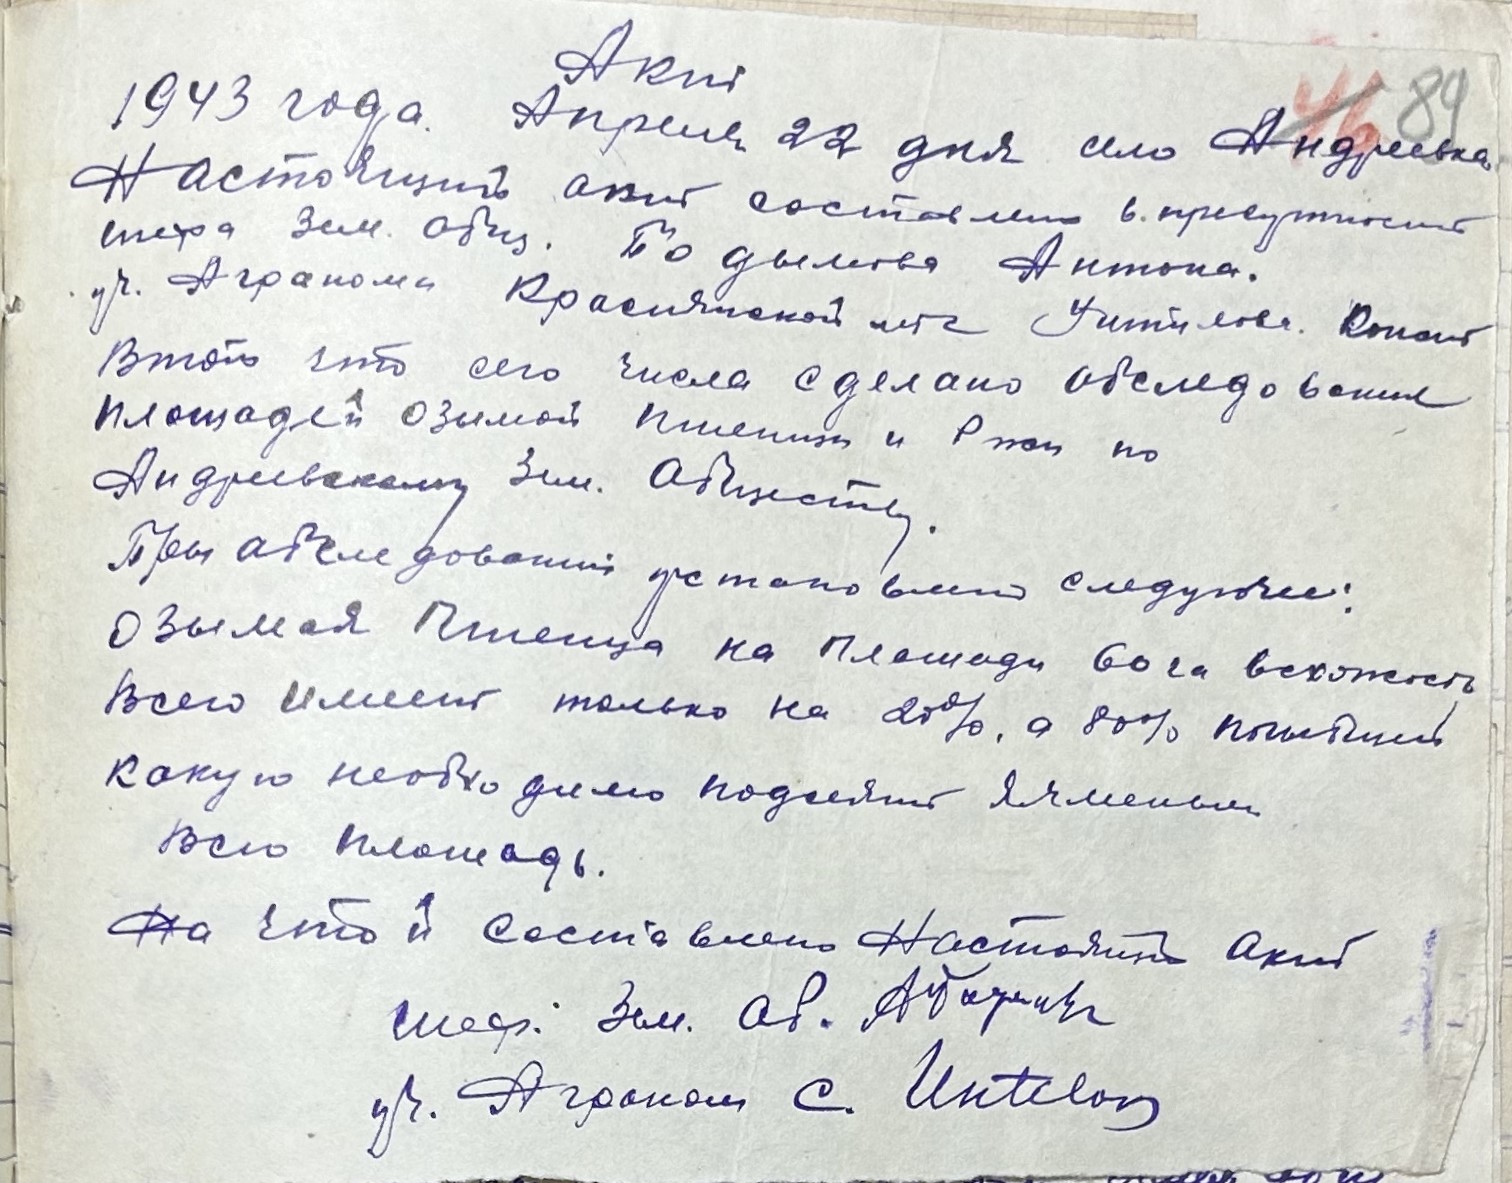 Акт
46 89
1943 года. Апреля 22 дня село Андреевка
Настоящий акт составлен в. присутност
шефа Зем. Общ. Подымова Антона.
уч. Агранома Краснянской мтс
Втом что сего числа сделано обследование
площадей озымой пшеницы и Ржи по
Андреевскому Зем. Обществу.
При обследовании установлено следуюче:
озымая Пшеница на площади 60 га всхожость
Всего имеет только на 20%, а 80% погибшей
какую необходимо подсеят ячменьем
всю площадь.
На что и составлено Настоящий акт
шеф. Зем. Об.
уч. Аграном С.